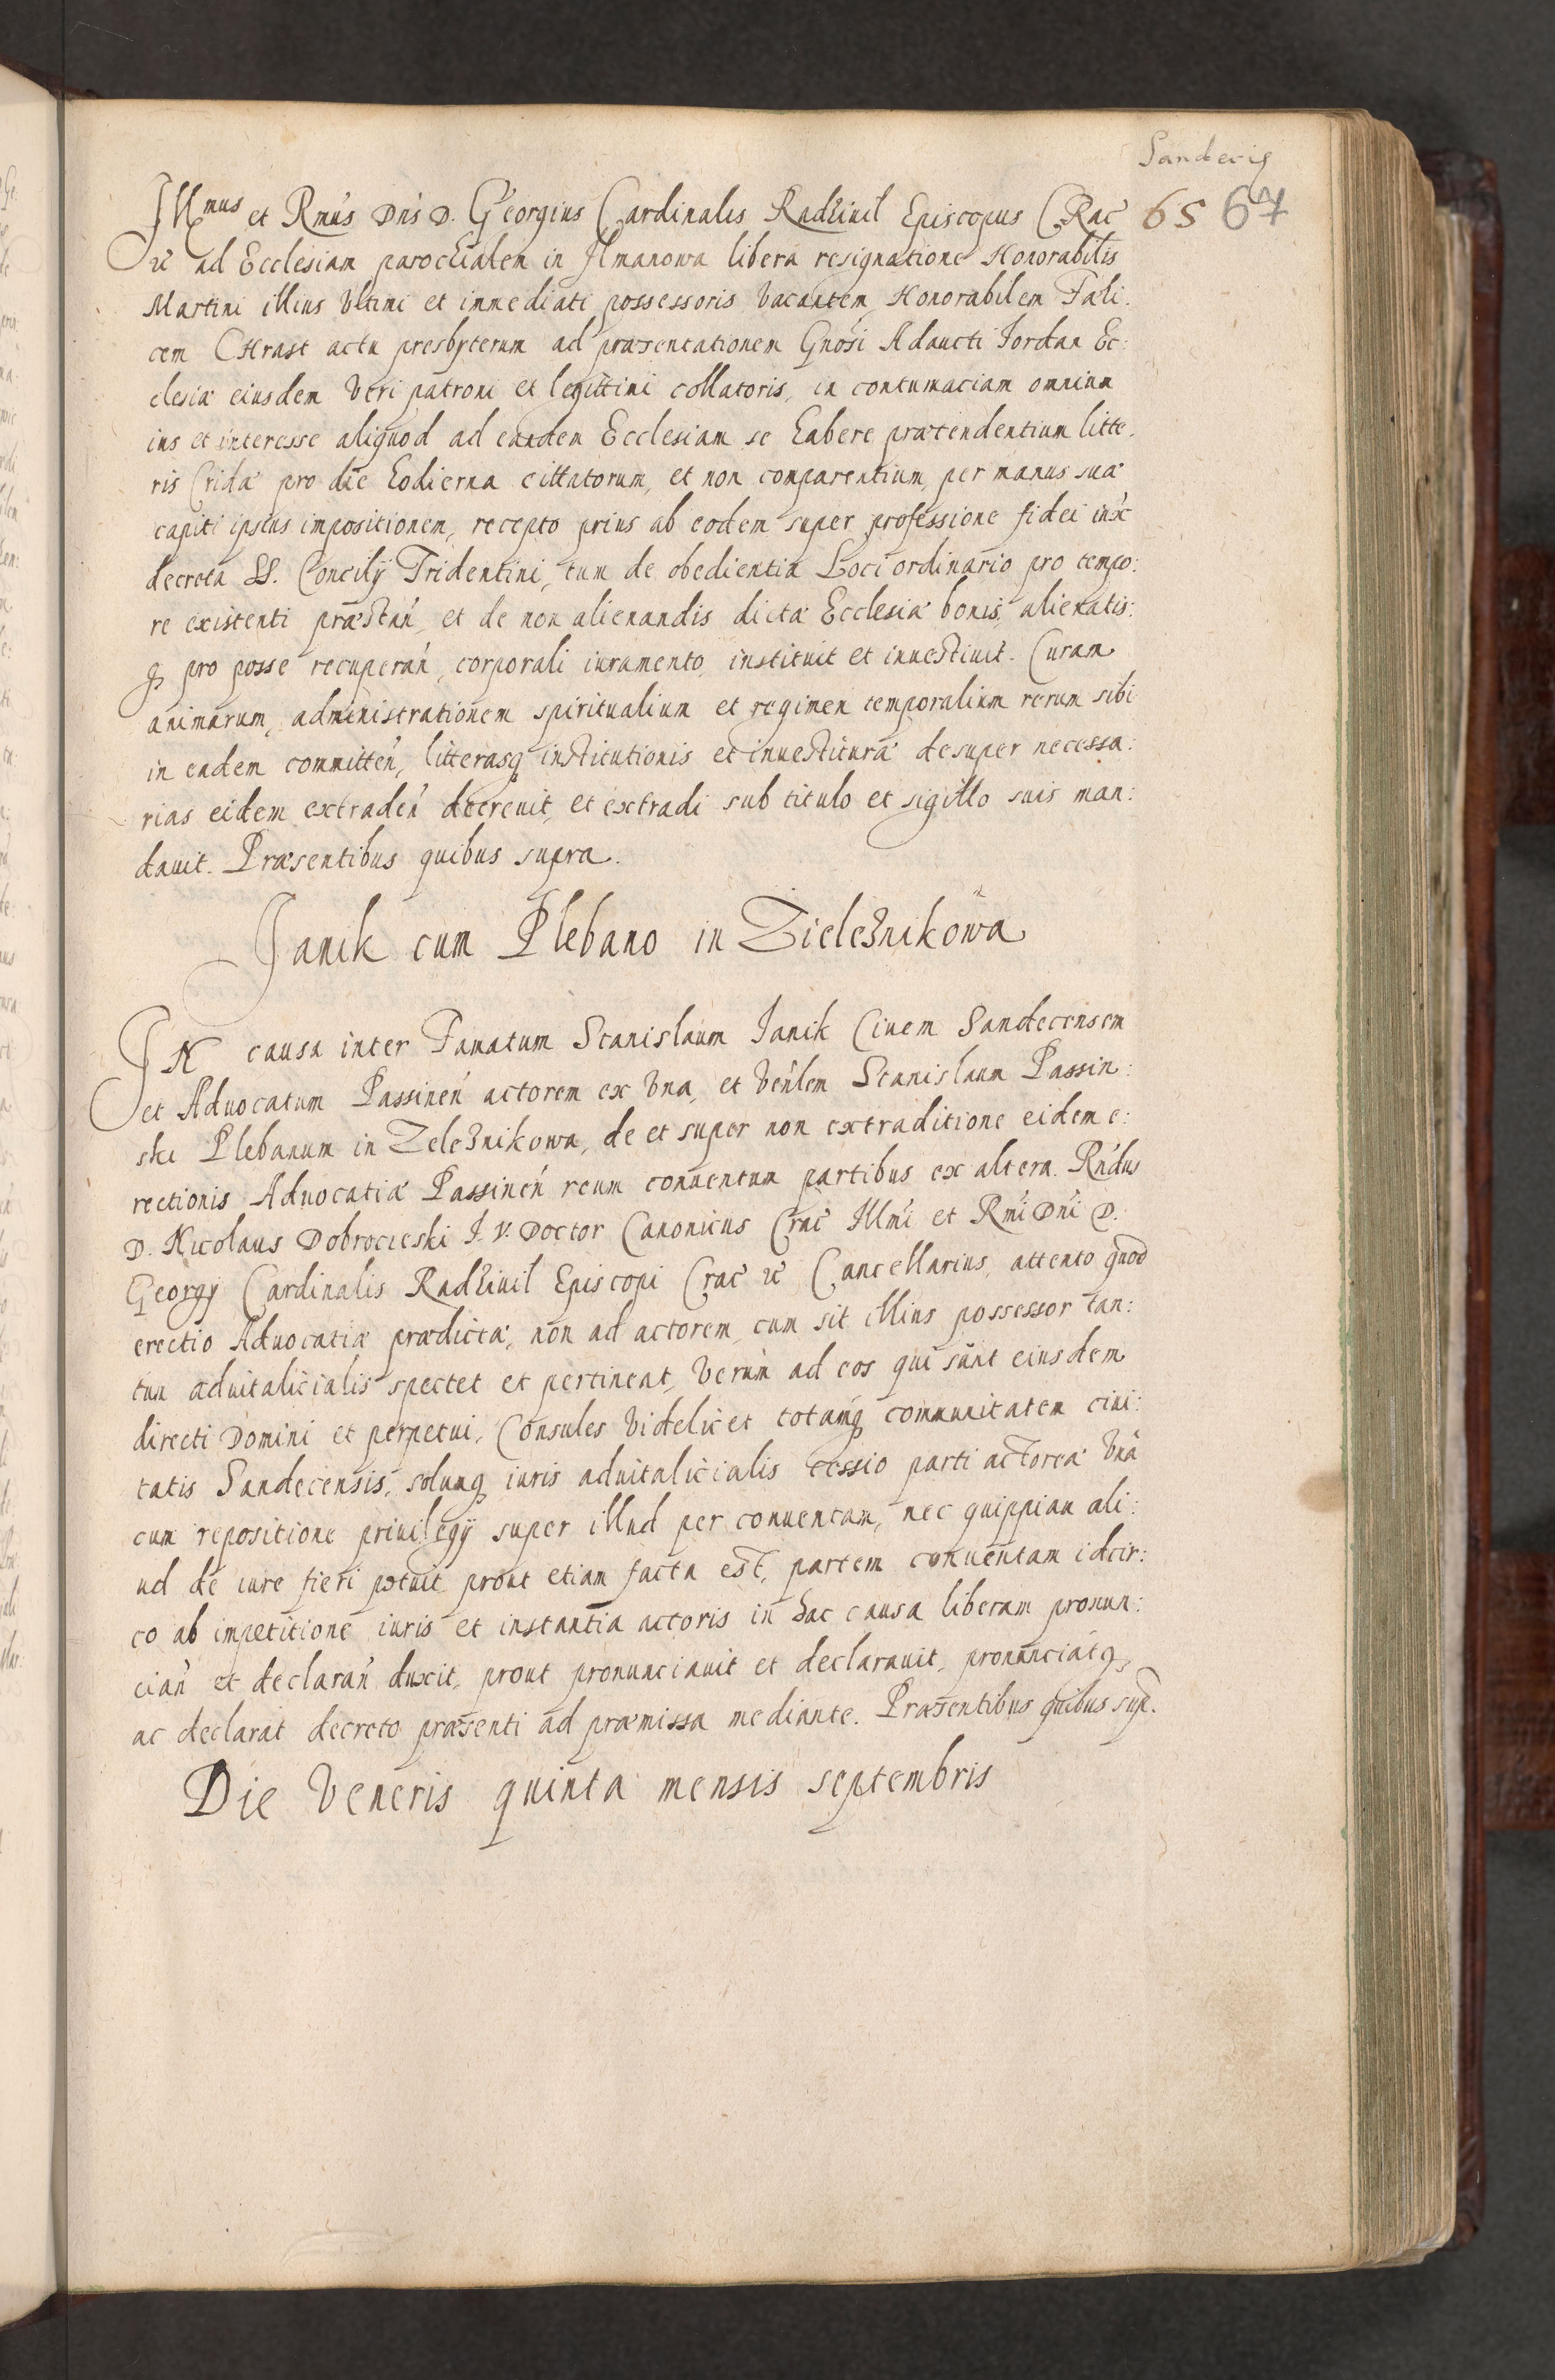 Sandecij
65 67
Illmus et Rmus Dns D. Georgius Cardinalis Radziuil Episcopus CRac
etc ad Ecclesiam parochialem in Ilmanowa libera resignatione Honorabilis
Martini illius Vltimi et immediati possessoris Vacantem, Honorabilem Fæli:
cem CHrast actu presbyterum ad præsentationem Gnosi Adaucti Iordan Ec:
clesiæ eiusdem Veri patroni et legittimi collatoris, in contumaciam omnium
ius et interesse aliquod ad eandem Ecclesiam se habere prætendentium litte:
ris Cridæ pro die hodierna cittatorum, et non comparentium, per manus suæ
capiti ipsius impositionem, recepto prius ab eodem super professione fidei iux
decreta SS. Concilij Tridentini, tum de obedientia Loci ordinario pro tempo:
re existenti præstan, et de non alienandis dictæ Ecclesiæ bonis, alienatis:
q pro posse recuperan, corporali iuramento, instituit et inuestiuit. Curam
animarum, administrationem spiritualium et regimen temporalium rerum sibi
in eadem committen, litterasq institutionis et inuestituræ desuper necessa:
rias eidem extraden decreuit, et extradi sub titulo et sigillo suis man:
dauit. Præsentibus quibus supra.
Janik cum Plebano in Zieleznikowa
IN causa inter Famatum Stanislaum Janik Ciuem Sandecensem
et Aduocatum Passinen actorem ex Vna, et Venlem Stanislaum Passin:
ski Plebanum in Zeleznikowa, de et super non extraditione eidem e:
rectionis Aduocatiæ Passinen reum conuentum partibus ex altera. Rndus
D. Nicolaus Dobrocieski I. V. Doctor Canonicus Crac Illmi et Rmi Dni D.
Georgy Cardinalis Radziuil Episcopi Crac etc Cancellarius, attento quod
erectio Aduocatiæ prædictæ, non ad actorem, cum sit illius possessor tan:
tum aduitalicialis spectet et pertineat, Verum ad eos qui sunt eiusdem
directi Domini et perpetui, Consules Videlicet totamq communitatem ciui:
tatis Sandecensis, solumq iuris aduitalicialis cessio parti actoreæ Vna
cum repositione priuilegij super illud per conuentam, nec quippiam ali:
ud de iure fieri potuit prout etiam facta est, partem conuentam idcir:
co ab impetitione iuris et instantia actoris in hac causa liberam pronun:
cian et declaran duxit, prout pronunciauit et declarauit, pronunciatq,
ac declarat decreto præsenti ad præmissa mediante. Præsentibus quibus sup.
Die Veneris quinta mensis septembris